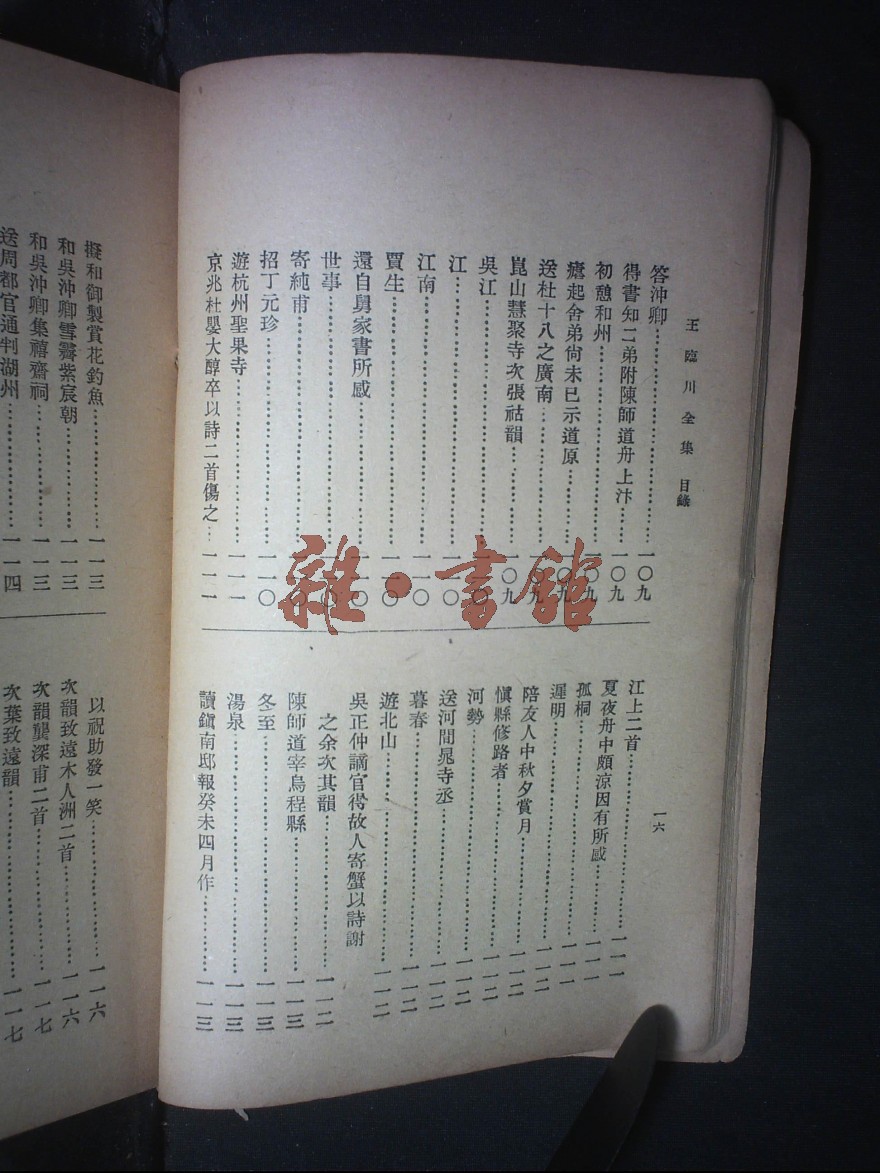 王臨川全集 目錄
答沖卿……一〇九
得書知二弟附陳師道舟上汴……一〇九
初憩和州……一〇九
瘧起舍弟尙未已示道原……一〇九
送杜十八之廣南……一〇九
崑山慧聚寺次張祜韻……一〇九
吳江……一一〇
江……一一〇
江南……一一〇
賈生……一一〇
還自舅家書所感……一一〇
世事……一一〇
寄純甫……一一〇
招丁元珍……一一〇
遊杭州聖果寺……一一一
京兆杜嬰大醇卒以詩二首傷之……一一一
江上二首……一一一
夏夜舟中頗涼因有所感……一一一
孤桐……一一一
遲明……一一一
陪友人中秋夕賞月……一一二
愼縣修路者……一一二
河勢……一一二
送河間晁寺丞……一一二
暮春……一一二
遊北山……一一二
吳正仲謫官得故人寄蟹以詩謝
之余次其韻……一一二
陳師道宰烏程縣……一一三
冬至……一一三
湯泉……一一三
讀鎭南邸報癸未四月作……一一三
一六
擬和御製賞花釣魚……一一三
和吳沖卿雪霽紫宸朝……一一三
和吳沖卿集禧齋祠……一一三
送周都官通判湖州……一一四
以祝助發一笑……一一六
次韻致遠木人洲二首……一一六
次韻龔深甫二首……一一七
次葉致遠韻……一一七
雜·書館